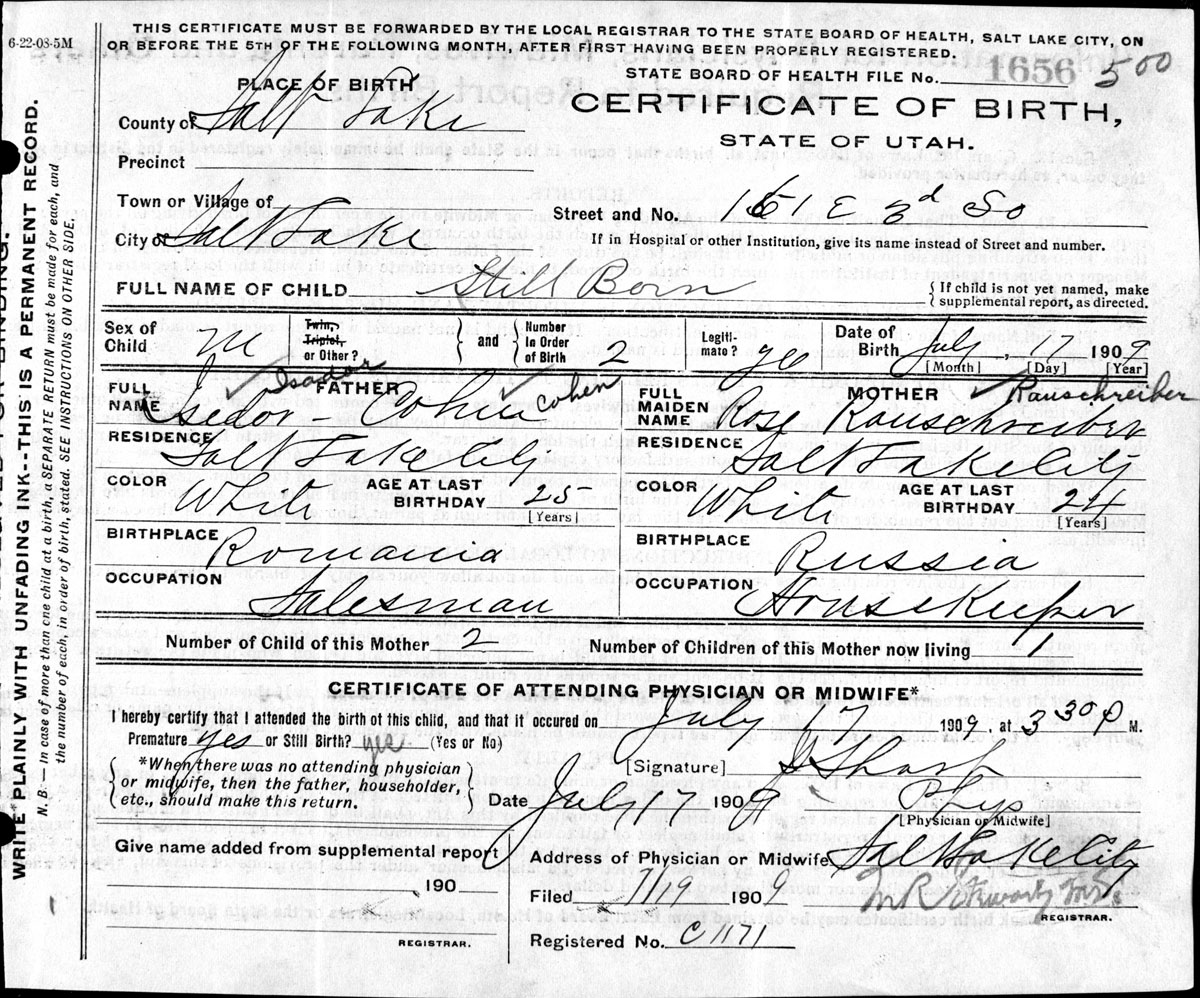 6-22-08-5M
THIS CERTIFICATE MUST BE FORWARDED BY THE LOCAL REGISTRAR TO THE STATE BOARD OF HEALTH, SALT LAKE CITY, ON
OR BEFORE THE 5TH OF THE FOLLOWING MONTH, AFTER FIRST HAVING BEEN PROPERLY REGISTERED.
STATE BOARD OF HEALTH FILE No. 1656 500
PLACE OF BIRTH
CERTIFICATE OF BIRTH,
STATE OF UTAH.
County of Salt Lake
Precinct
Town or Village of
Street and No. E 3d So
City of Salt Lake
If in Hospital or other Institution, give its name instead of Street and number.
FULL NAME OF CHILD Still Born
{If child is not yet named, make
supplemental report, as directed.
Sex of Child M
Twin, Triplet, or Other?
} and {
Number in Order of Birth 2
Legitimate? yes
Date of Birth July 17 1909
[Month] [Day] [Year]
Isador Cohen
FATHER
FULL NAME Isedor Cohn
RESIDENCE Salt Lake City
COLOR White
AGE AT LAST BIRTHDAY 25
[Years]
BIRTHPLACE Romania
OCCUPATION Salesman
MOTHER
Rauschreiber
FULL MAIDEN NAME Rose Rauschreiber
RESIDENCE Salt Lake City
COLOR White
AGE AT LAST BIRTHDAY 24
[Years]
BIRTHPLACE Russia
OCCUPATION Housekeeper
Number of Child of this Mother 2
Number of Children of this Mother now living 1
CERTIFICATE OF ATTENDING PHYSICIAN OR MIDWIFE*
I hereby certify that I attended the birth of this child, and that it occured on July 17 1909, at 3 30 P M.
Premature yes or Still Birth? yes (Yes or No)
{*When there was no attending physician
or midwife, then the father, householder,
etc., should make this return.}
[Signature] Sharp
Date July 17 1909
Phys
[Physician or Midwife]
Give name added from supplemental report
190
REGISTRAR.
Address of Physician or Midwife Salt Lake City
Filed 7/19 1909
REGISTRAR.
Registered No. C1171
WRITE PLAINLY WITH UNFADING INK--THIS IS A PERMANENT RECORD.
N. B. — In case of more than one child at a birth, a SEPARATE RETURN must be made for each, and
the number of each, in order of birth, stated. SEE INSTRUCTIONS ON OTHER SIDE.